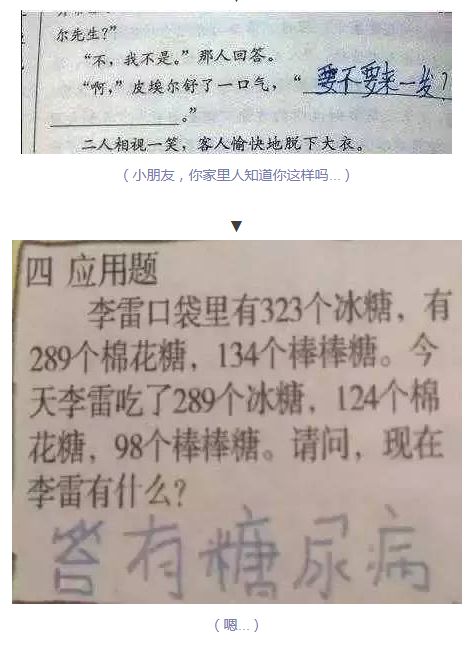 尔先生?”
“不，我不是。”那人回答。
“啊，”皮埃尔舒了一口气，“要不要来一发?
。”
二人相视一笑，客人愉快地脱下大衣。
（小朋友，你家里人知道你这样吗...）
▼
四 应用题
李雷口袋里有323个冰糖，有
289个棉花糖，134个棒棒糖。今
天李雷吃了289个冰糖，124个棉
花糖，98个棒棒糖。请问，现在
李雷有什么?
答有糖尿病
（嗯...）